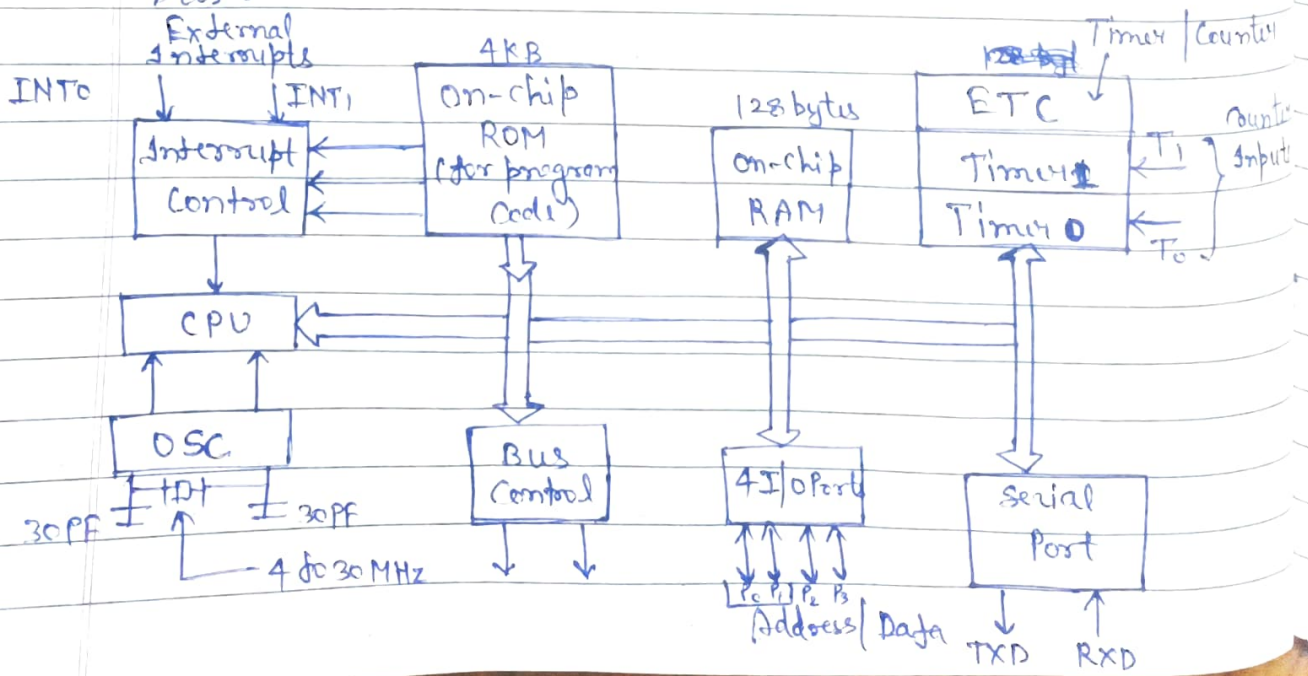 External
Interrupts
INT0
INT1
Interrupt
Control
4KB
On-chip
ROM
(for program
Code)
128 bytes
On-chip
RAM
Timer / Counter
ETC
Timer 1
Timer 0
T1
T0
Input
CPU
OSC
30PF
30PF
4 to 30 MHz
Bus
Control
4 I/O Port
P0 P1 P2 P3
Address / Data
Serial
Port
TXD
RXD